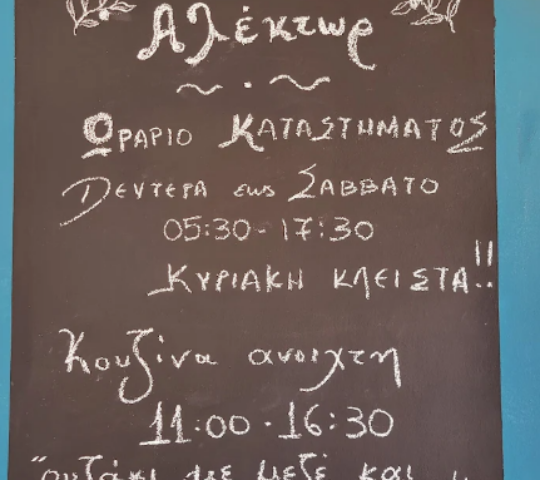 Αλέκτωρ
ΩΡΑΡΙΟ ΚΑΤΑΣΤΗΜΑΤΟΣ
ΔΕΥΤΕΡΑ εως ΣΑΒΒΑΤΟ
05:30-17:30
ΚΥΡΙΑΚΗ ΚΛΕΙΣΤΑ!!
Κουζίνα ανοιχτη
11:00-16:30
"ουζάκι με μεζέ και